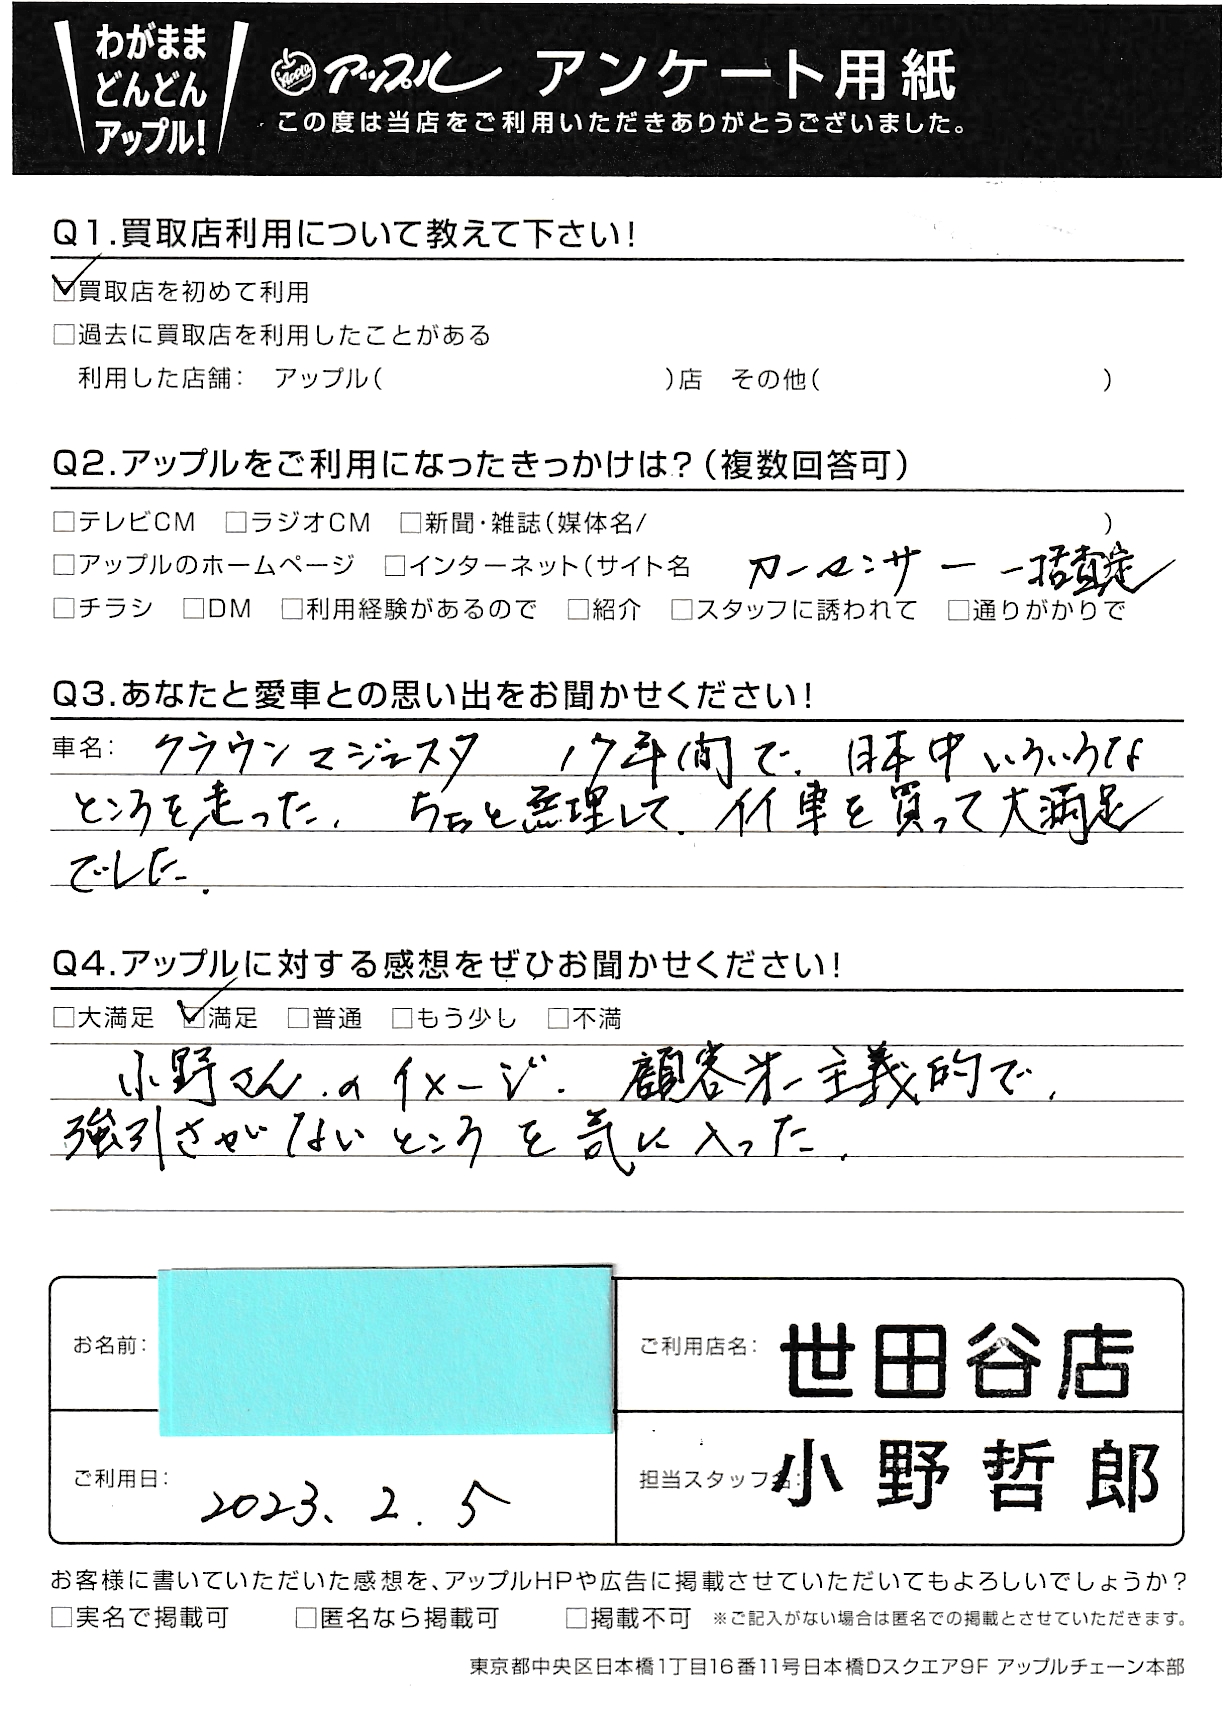 わがまま
どんどん
アップル!
Apple アップル アンケート用紙
この度は当店をご利用いただきありがとうございました。
Q1.買取店利用について教えて下さい!
☑買取店を初めて利用
□過去に買取店を利用したことがある
利用した店舗: アップル( )店 その他( )
Q2.アップルをご利用になったきっかけは?(複数回答可)
□テレビCM □ラジオCM □新聞・雑誌(媒体名/ )
□アップルのホームページ □インターネット(サイト名 カーセンサー 一括査定
□チラシ □DM □利用経験があるので □紹介 □スタッフに誘われて □通りがかりで
Q3.あなたと愛車との思い出をお聞かせください!
車名: クラウンマジェスタ 17年間で、日本中いろいろな
ところを走った。ちょっと無理して、イイ車を買って大満足
でした。
Q4.アップルに対する感想をぜひお聞かせください!
□大満足 ☑満足 □普通 □もう少し □不満
小野さんのイメージ。顧客オー主義的で、
強引さがないところを気に入った。
お名前:
ご利用店名: 世田谷店
ご利用日: 2023. 2. 5
担当スタッフ名: 小野哲郎
お客様に書いていただいた感想を、アップルHPや広告に掲載させていただいてもよろしいでしょうか?
□実名で掲載可 □匿名なら掲載可 □掲載不可 ※ご記入がない場合は匿名での掲載とさせていただきます。
東京都中央区日本橋1丁目16番11号日本橋Dスクエア9F アップルチェーン本部